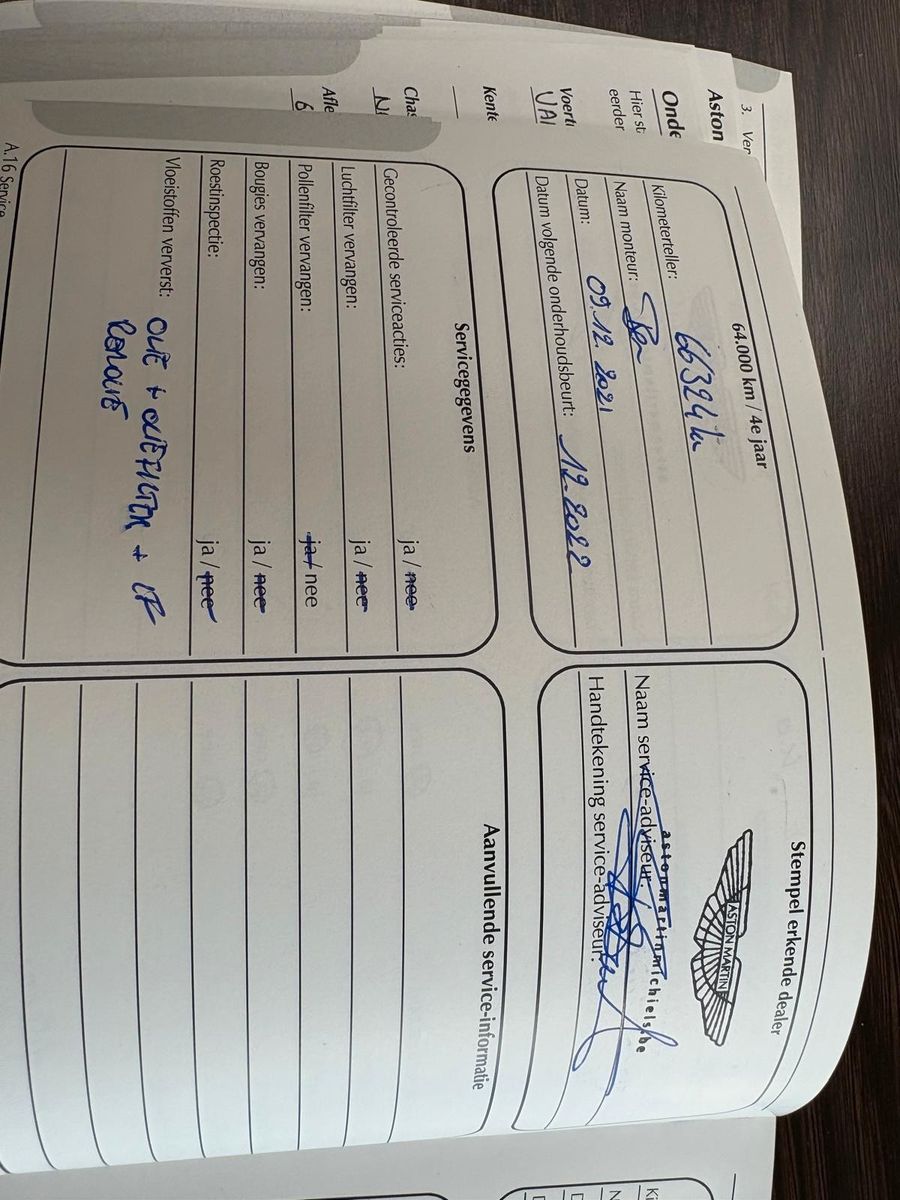 3. Ver
Aston
Onde
Hier st
eerder
Voert
VAN
Kente
Chas
Afle
6
64.000 km / 4e jaar
Kilometerteller: 66324 km
Naam monteur:
Datum: 09.12.2021
Datum volgende onderhoudsbeurt: 12-2022
Stempel erkende dealer
ASTON MARTIN
astonmartinmichiels.be
Naam service-adviseur:
Handtekening service-adviseur:
Servicegegevens
Gecontroleerde serviceacties: ja / nee
Luchtfilter vervangen: ja / nee
Pollenfilter vervangen: ja / nee
Bougies vervangen: ja / nee
Roestinspectie: ja / nee
Vloeistoffen ververst: OLIE + OLIEFILTER + LF
Aanvullende service-informatie
A.16 Service